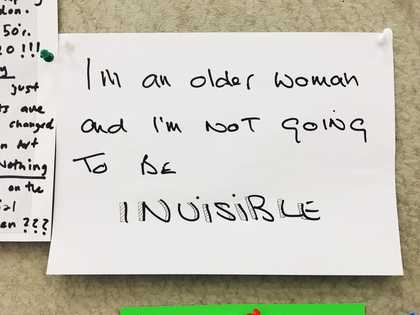 don.
50's.
0 !!!
y
just
ts are
changed
n Art
Nothing
on the
ial
en ???
I'm an older woman
and I'm NOT GOING
TO BE
INVISIBLE